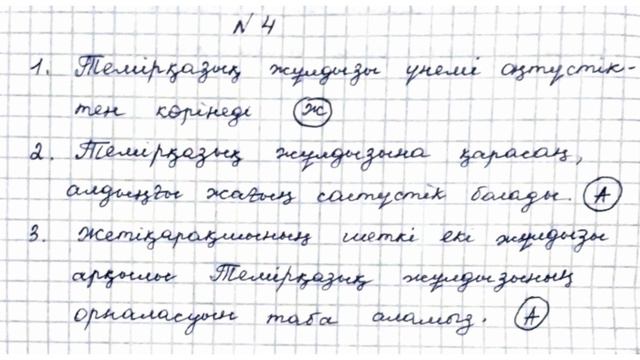 № 4
1. Темірқазық жұлдызы үнемі оңтүстік-
тен көрінеді Ж
2. Темірқазық жұлдызына қарасаң,
алдыңғы жағың солтүстік болады. А
3. Жетіқарақшының шеткі екі жұлдызы
арқылы Темірқазық жұлдызының
орналасуын таба аламыз. А